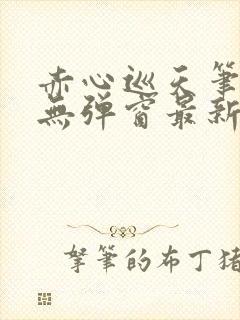 赤心巡天筆
無彈窗最新
拏筆的布丁猪